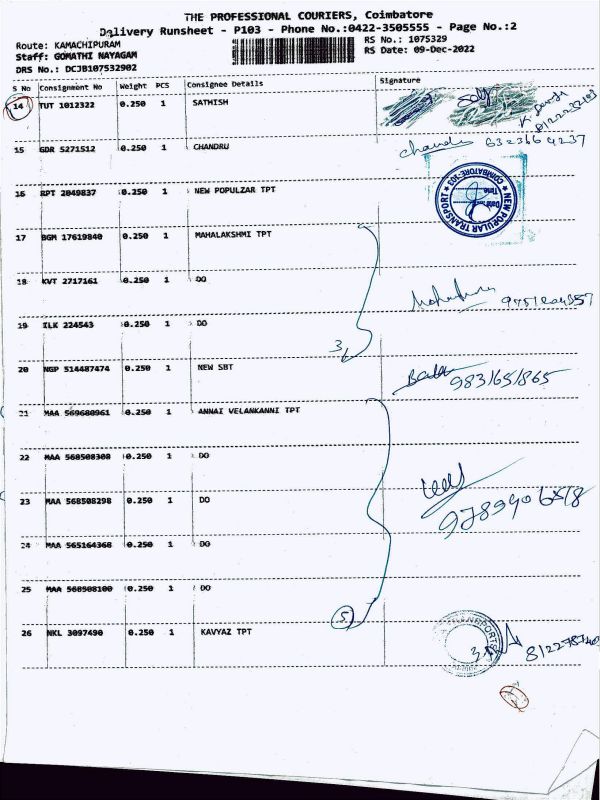 THE PROFESSIONAL COURIERS, Coimbatore
Delivery Runsheet - P103 - Phone No.:0422-3505555 - Page No.:2
Route: KAMACHIPURAM
RS No.: 1075329
Staff: GOMATHI NAYAGAM
RS Date: 09-Dec-2022
DRS No.: DCJB107532902
S No Consignment No Weight PCS Consignee Details Signature
14 TUT 1012322 0.250 1 SATHISH
15 GDR 5271512 0.250 1 CHANDRU
16 RPT 2049837 0.250 1 NEW POPULZAR TPT
NEW POPULAR TRANSPORT
COIMBATORE-103
Date
Time
17 BGM 17619840 0.250 1 MAHALAKSHMI TPT
18 KVT 2717161 0.250 1 DO
19 ILK 224543 0.250 1 DO
3
20 NGP 514487474 0.250 1 NEW SBT
9831651865
21 MAA 569680961 0.250 1 ANNAI VELANKANNI TPT
22 MAA 568508308 0.250 1 DO
23 MAA 568508298 0.250 1 DO
24 MAA 565164368 0.250 1 DO
25 MAA 568508100 0.250 1 DO
5
26 NKL 3097490 0.250 1 KAVYAZ TPT